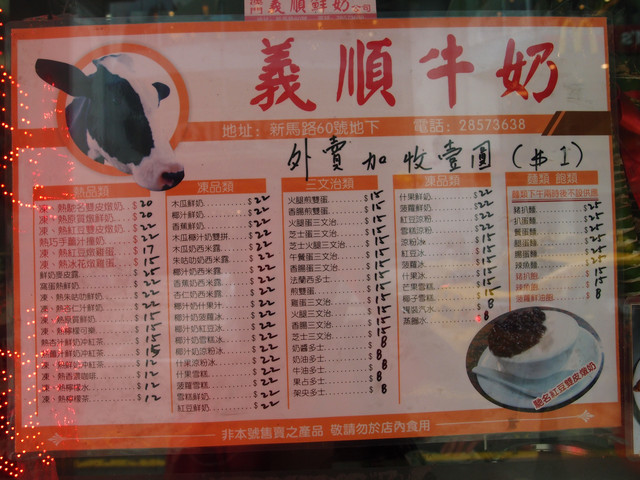 澳門義順鮮奶公司
義順牛奶
地址：新馬路60號地下 電話：28573638
外賣加收壹圓（$1）
熱品類
凍、熱馳名雙皮燉奶 $20
凍、熱原質鮮燉奶 $20
凍、熱紅豆雙皮燉奶 $22
熱巧手薑汁撞奶 $22
凍、熱紅豆燉雞蛋 $17
凍、熱冰花燉雞蛋 $15
鮮奶麥皮露 $25
窩蛋熱鮮奶 $22
凍、熱朱古力鮮奶 $22
凍、熱杏仁汁鮮奶 $22
凍、熱原質鮮奶
凍、熱檸檬可樂 $15
熱杏汁鮮奶沖紅茶 $15
熱薑汁鮮奶沖紅茶 $15
凍、熱鮮奶沖紅茶 $12
凍、熱香濃咖啡 $12
凍、熱檸檬水 $12
凍、熱檸檬茶 $12
凍品類
木瓜鮮奶 $22
椰汁鮮奶 $22
香蕉鮮奶 $22
木瓜椰汁奶雙拼 $22
木瓜奶西米露 $22
朱咕叻奶西米露 $22
椰汁奶西米露 $22
香蕉奶西米露 $22
杏仁奶西米露 $22
椰汁奶什果 $22
椰汁奶菠蘿冰 $22
椰汁奶紅豆冰 $22
椰汁奶雪糕 $22
椰汁奶涼粉冰 $22
什果涼粉冰 $22
什果雪糕 $22
菠蘿雪糕 $22
雪糕鮮奶 $22
紅豆鮮奶 $22
三文治類
火腿煎雙蛋 $15
香腸煎雙蛋 $15
火腿蛋三文治 $15
芝士蛋三文治 $15
芝士火腿三文治 $15
午餐蛋三文治 $15
香腸蛋三文治 $15
法蘭西多士 $15
煎雙蛋 $15
雞蛋三文治 $15
火腿三文治 $15
香腸三文治 $15
芝士三文治 $15
奶醬多士 $8
奶油多士 $8
牛油多士 $8
果占多士 $8
架央多士 $8
凍品類
什果鮮奶 $22
菠蘿鮮奶 $22
紅豆涼粉 $22
雪糕涼粉 $22
涼粉冰 $15
紅豆冰 $15
菠蘿冰 $15
什果冰 $15
芒果雪糕 $15
椰子雪糕 $15
罐裝汽水 $8
蒸餾水 $8
麵類 飽類
麵類下午兩時後不設供應
豬扒麵 $25
餐蛋麵 $25
腸蛋麵 $25
辣魚麵 $25
豬扒飽 $15
辣魚飽 $15
菠蘿鮮油飽 $8
馳名紅豆雙皮燉奶
非本號售賣之產品 敬請勿於店內食用